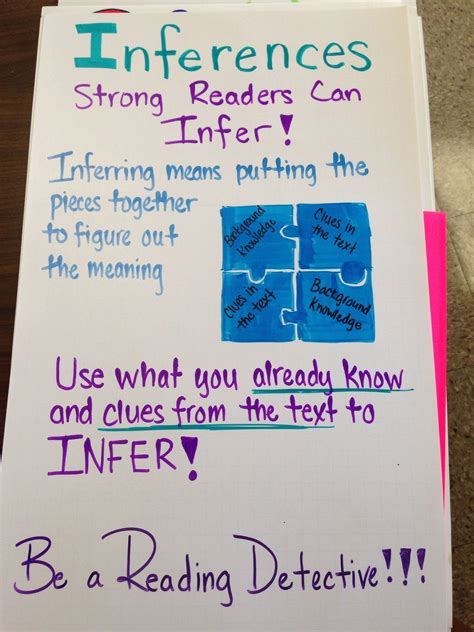 Inferences
Strong Readers Can
Infer!
Inferring means putting the
pieces together
to figure out
the meaning
Background
Knowledge
Clues in
the text
Clues in
the text
Background
Knowledge
Use what you already know
and clues from the text to
INFER!
Be a Reading Detective!!!